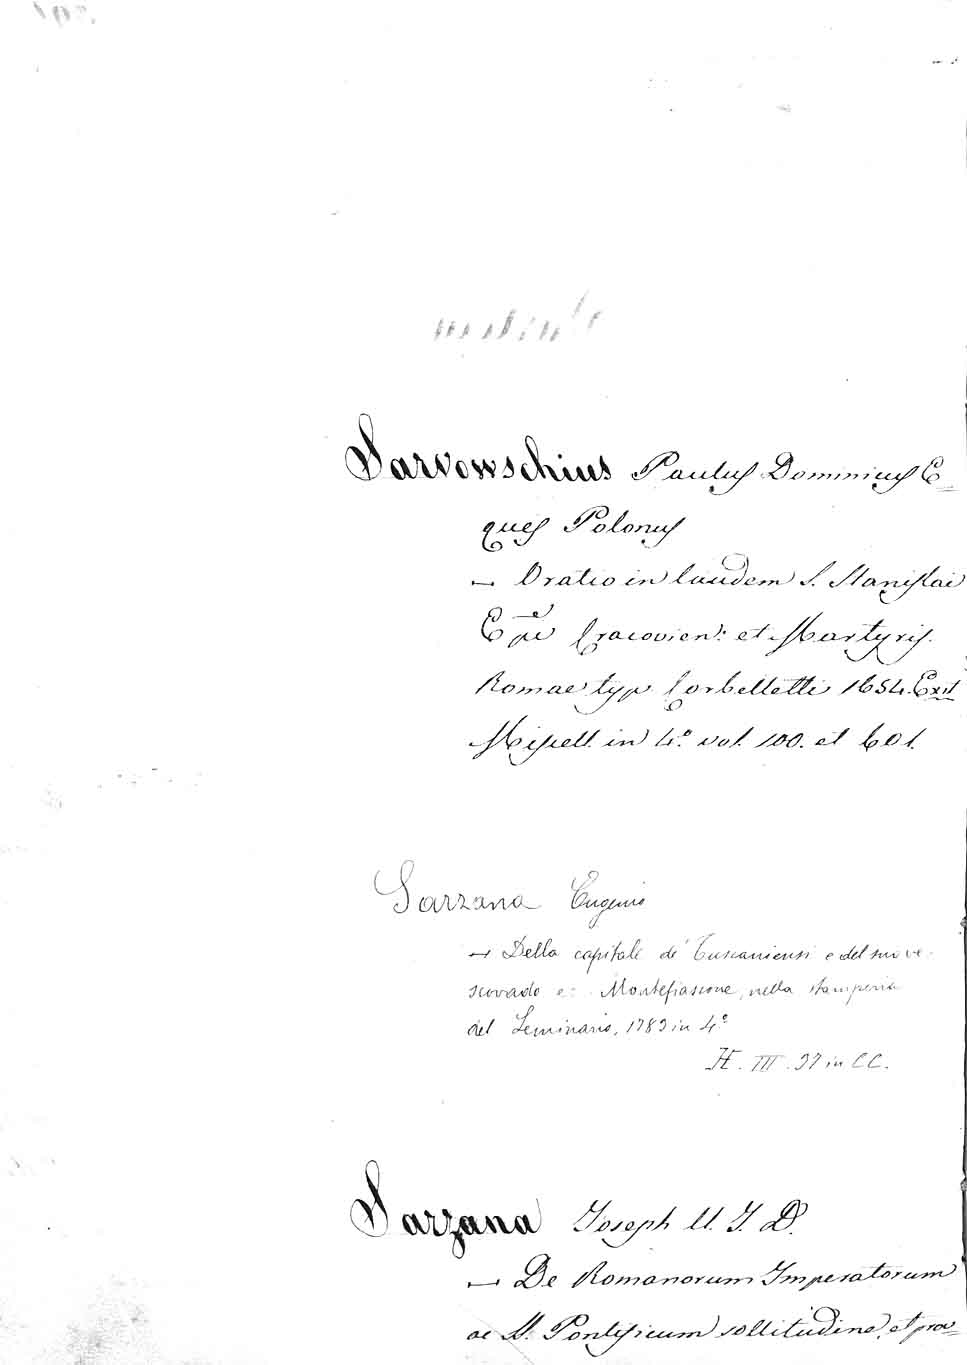 Sarvowschius Paulus Dominicus E=
ques Polonus
— Oratio in laudem S. Stanislai
Epē Cracovien: et Martyris.
Romae typ. Corbelletti 1654. Exit
Miscell. in 4.º vol. 100. et 601.
Sarzana Eugenio
— Della capitale de' Tuscaniensi e del suo ve-
scovado e: Montefiascone, nella stamperia
del Seminario, 1783 in 4º
H. III. 37 in CC.
Sarzana Joseph U. J. D.
— De Romanorum Imperatorum
ac SS. Pontificum sollitudine, et prov=